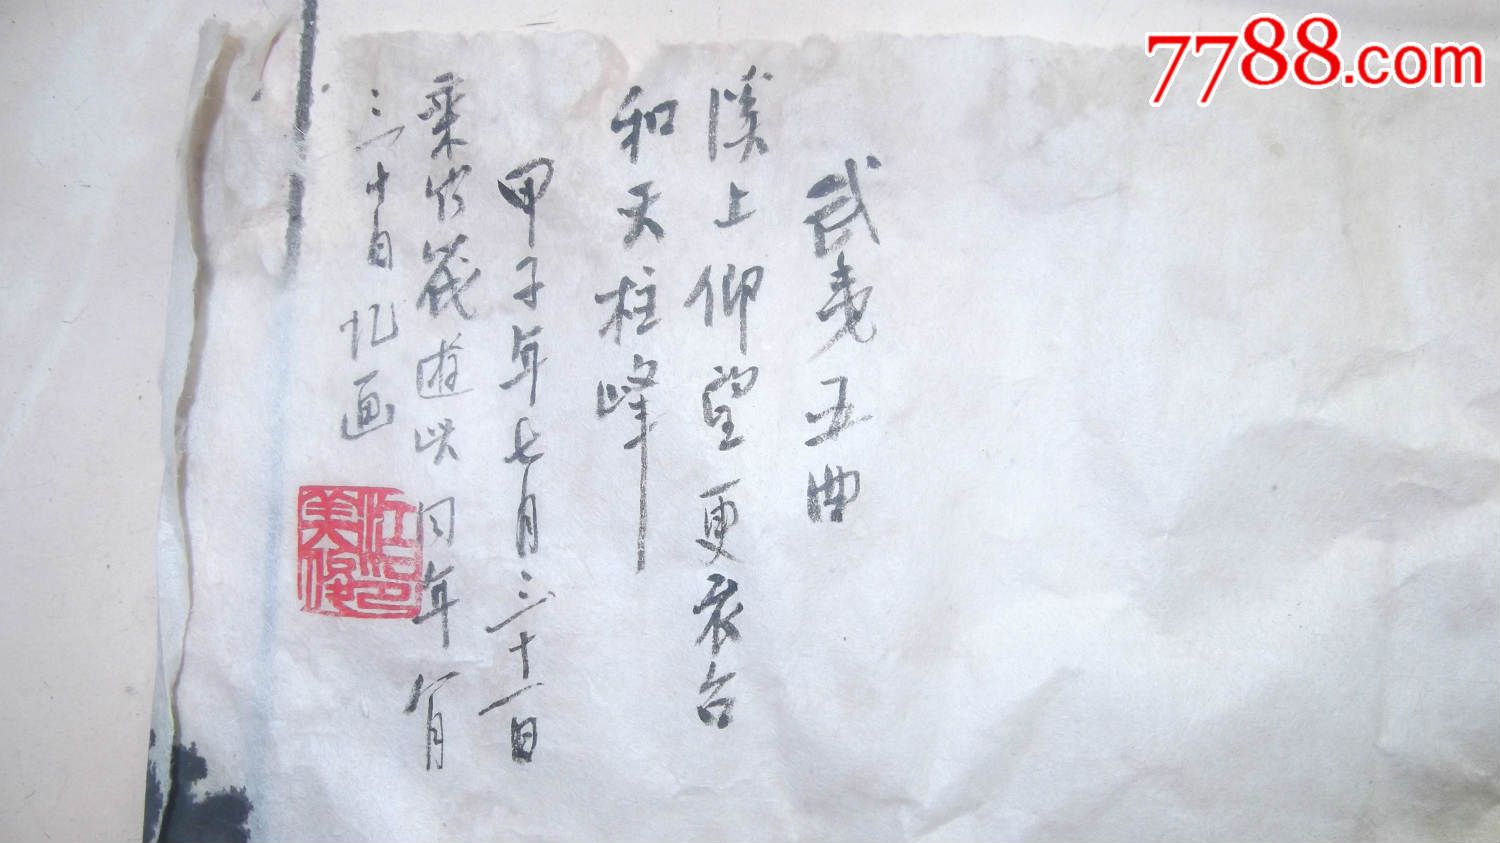 7788.com
武夷五曲
溪上仰望更衣台
和天柱峰
甲子年七月三十一日
乘竹筏遊此同年八月
三十日忆画